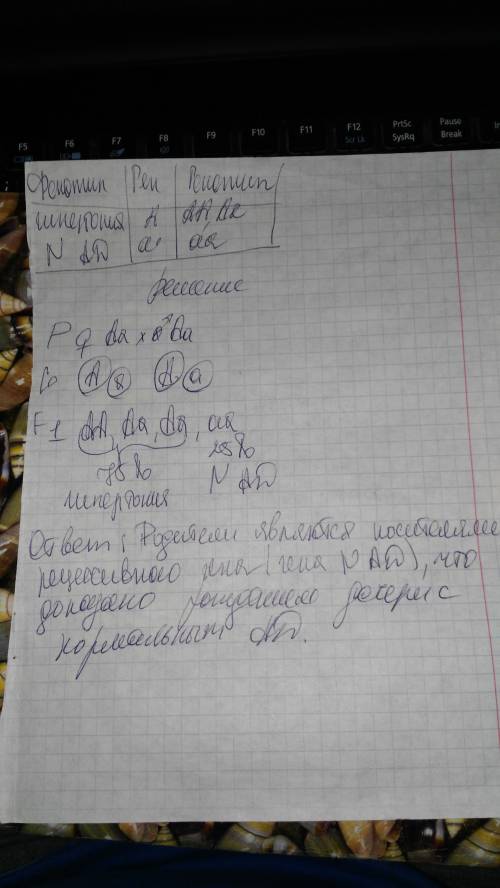 F5 F6 F7 F8 F9 F10 F11 F12 PrtSc Pause
Scr Lk SysRq Break
Фенотип Ген Генотип
гипертония А АА, Аа
N АД а аа
Решение
Р ♀ Аа х ♂ Аа
G А а А а
F1 АА, Аа, Аа, аа
75% 25%
гипертония N АД
Ответ: Родители являются носителями
рецессивного гена (гена N АД), что
доказано рождением дочери с
нормальным АД.